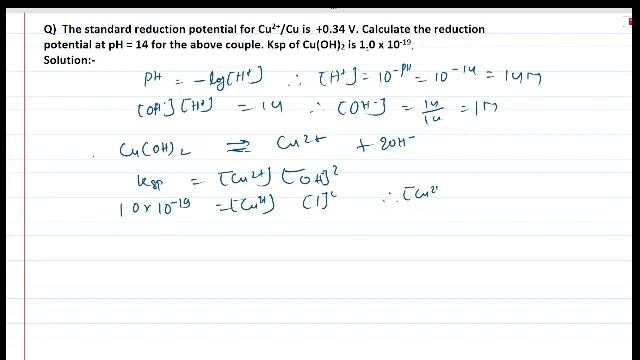 Q) The standard reduction potential for Cu²⁺/Cu is +0.34 V. Calculate the reduction
potential at pH = 14 for the above couple. Ksp of Cu(OH)₂ is 1.0 x 10⁻¹⁹.
Solution:-
pH = -log[H⁺] ∴ [H⁺] = 10⁻ᵖᴴ = 10⁻¹⁴ = 14M
[OH⁻][H⁺] = 14 ∴ [OH⁻] = 14/14 = 1M
Cu(OH)₂ ⇌ Cu²⁺ + 2OH⁻
Ksp = [Cu²⁺] [OH]²
1.0 x 10⁻¹⁹ = [Cu²⁺] [1]² ∴ [Cu²⁺